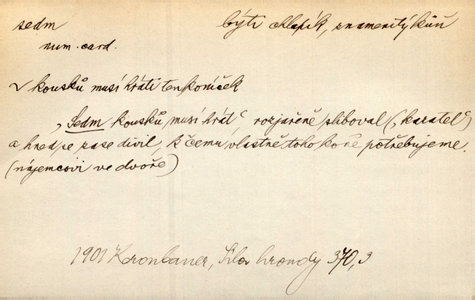 sedm býti chlapík, znamenitý kůň
num. card.
v kousků musí hráti ten koníček
„Sedm kousků musí hrát" rozjařeně sliboval („karatel")
a hned se zase divil, k čemu vlastně toho koně potřebujeme.
(nájemcovi ve dvoře)
1901 Kronbauer, Síla hroudy 370,3